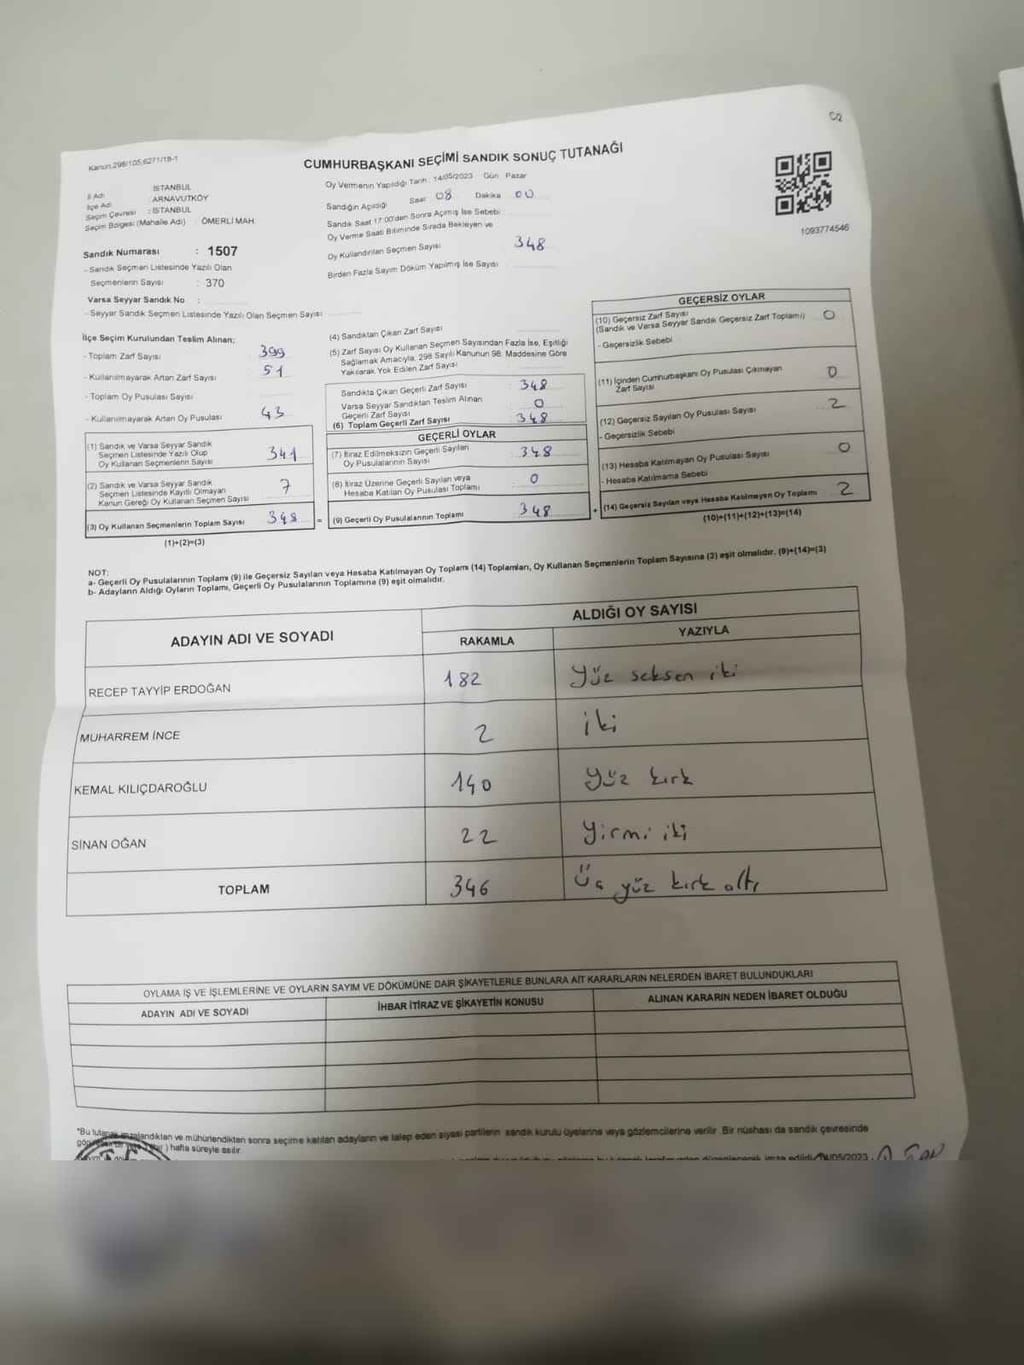 C2
Kanun.298/105,6271/18-1
CUMHURBAŞKANI SEÇİMİ SANDIK SONUÇ TUTANAĞI
İl Adı : İSTANBUL
İlçe Adı : ARNAVUTKÖY
Seçim Çevresi : İSTANBUL
Seçim Bölgesi (Mahalle Adı) : ÖMERLİ MAH.
Sandık Numarası : 1507
- Sandık Seçmen Listesinde Yazılı Olan
Seçmenlerin Sayısı : 370
Varsa Seyyar Sandık No :
- Seyyar Sandık Seçmen Listesinde Yazılı Olan Seçmen Sayısı :
Oy Vermenin Yapıldığı Tarih : 14/05/2023 Gün : Pazar
Sandığın Açıldığı Saat 08 Dakika 00
Sandık Saat 17:00'den Sonra Açılmış İse Sebebi
Oy Verme Saati Bitiminde Sırada Bekleyen ve
Oy Kullandırılan Seçmen Sayısı 348
Birden Fazla Sayım Döküm Yapılmış İse Sayısı
1093774546
İlçe Seçim Kurulundan Teslim Alınan;
- Toplam Zarf Sayısı 399
- Kullanılmayarak Artan Zarf Sayısı 51
- Toplam Oy Pusulası Sayısı
- Kullanılmayarak Artan Oy Pusulası 43
(1) Sandık ve Varsa Seyyar Sandık
Seçmen Listesinde Yazılı Olup
Oy Kullanan Seçmenlerin Sayısı 341
(2) Sandık ve Varsa Seyyar Sandık
Seçmen Listesinde Kayıtlı Olmayan
Kanun Gereği Oy Kullanan Seçmen Sayısı 7
(3) Oy Kullanan Seçmenlerin Toplam Sayısı 348
(1)+(2)=(3)
(4) Sandıktan Çıkan Zarf Sayısı
(5) Zarf Sayısı Oy Kullanan Seçmen Sayısından Fazla İse, Eşitliği
Sağlamak Amacıyla, 298 Sayılı Kanunun 98. Maddesine Göre
Yakılarak Yok Edilen Zarf Sayısı
Sandıkta Çıkan Geçerli Zarf Sayısı 348
Varsa Seyyar Sandıktan Teslim Alınan
Geçerli Zarf Sayısı 0
(6) Toplam Geçerli Zarf Sayısı 348
GEÇERLİ OYLAR
(7) İtiraz Edilmeksizin Geçerli Sayılan
Oy Pusulalarının Sayısı 348
(8) İtiraz Üzerine Geçerli Sayılan veya
Hesaba Katılan Oy Pusulası Toplamı 0
= (9) Geçerli Oy Pusulalarının Toplamı 348
GEÇERSİZ OYLAR
(10) Geçersiz Zarf Sayısı 0
(Sandık ve Varsa Seyyar Sandık Geçersiz Zarf Toplamı)
- Geçersizlik Sebebi
(11) İçinden Cumhurbaşkanı Oy Pusulası Çıkmayan
Zarf Sayısı 0
(12) Geçersiz Sayılan Oy Pusulası Sayısı 2
- Geçersizlik Sebebi
(13) Hesaba Katılmayan Oy Pusulası Sayısı 0
- Hesaba Katılmama Sebebi
+ (14) Geçersiz Sayılan veya Hesaba Katılmayan Oy Toplamı 2
(10)+(11)+(12)+(13)=(14)
NOT:
a- Geçerli Oy Pusulalarının Toplamı (9) ile Geçersiz Sayılan veya Hesaba Katılmayan Oy Toplamı (14) Toplamları, Oy Kullanan Seçmenlerin Toplam Sayısına (3) eşit olmalıdır. (9)+(14)=(3)
b- Adayların Aldığı Oyların Toplamı, Geçerli Oy Pusulalarının Toplamına (9) eşit olmalıdır.
ADAYIN ADI VE SOYADI ALDIĞI OY SAYISI
RAKAMLA YAZIYLA
RECEP TAYYİP ERDOĞAN 182 Yüz seksen iki
MUHARREM İNCE 2 iki
KEMAL KILIÇDAROĞLU 140 Yüz kırk
SİNAN OĞAN 22 Yirmi iki
TOPLAM 346 Üç yüz kırk altı
OYLAMA İŞ VE İŞLEMLERİNE VE OYLARIN SAYIM VE DÖKÜMÜNE DAİR ŞİKAYETLERLE BUNLARA AİT KARARLARIN NELERDEN İBARET BULUNDUKLARI
ADAYIN ADI VE SOYADI İHBAR İTİRAZ VE ŞİKAYETİN KONUSU ALINAN KARARIN NEDEN İBARET OLDUĞU
*Bu tutanak imzalandıktan ve mühürlendikten sonra seçime katılan adayların ve talep eden siyasi partilerin sandık kurulu üyelerine veya gözlemcilerine verilir. Bir nüshası da sandık çevresinde
) hafta süreyle asılır.